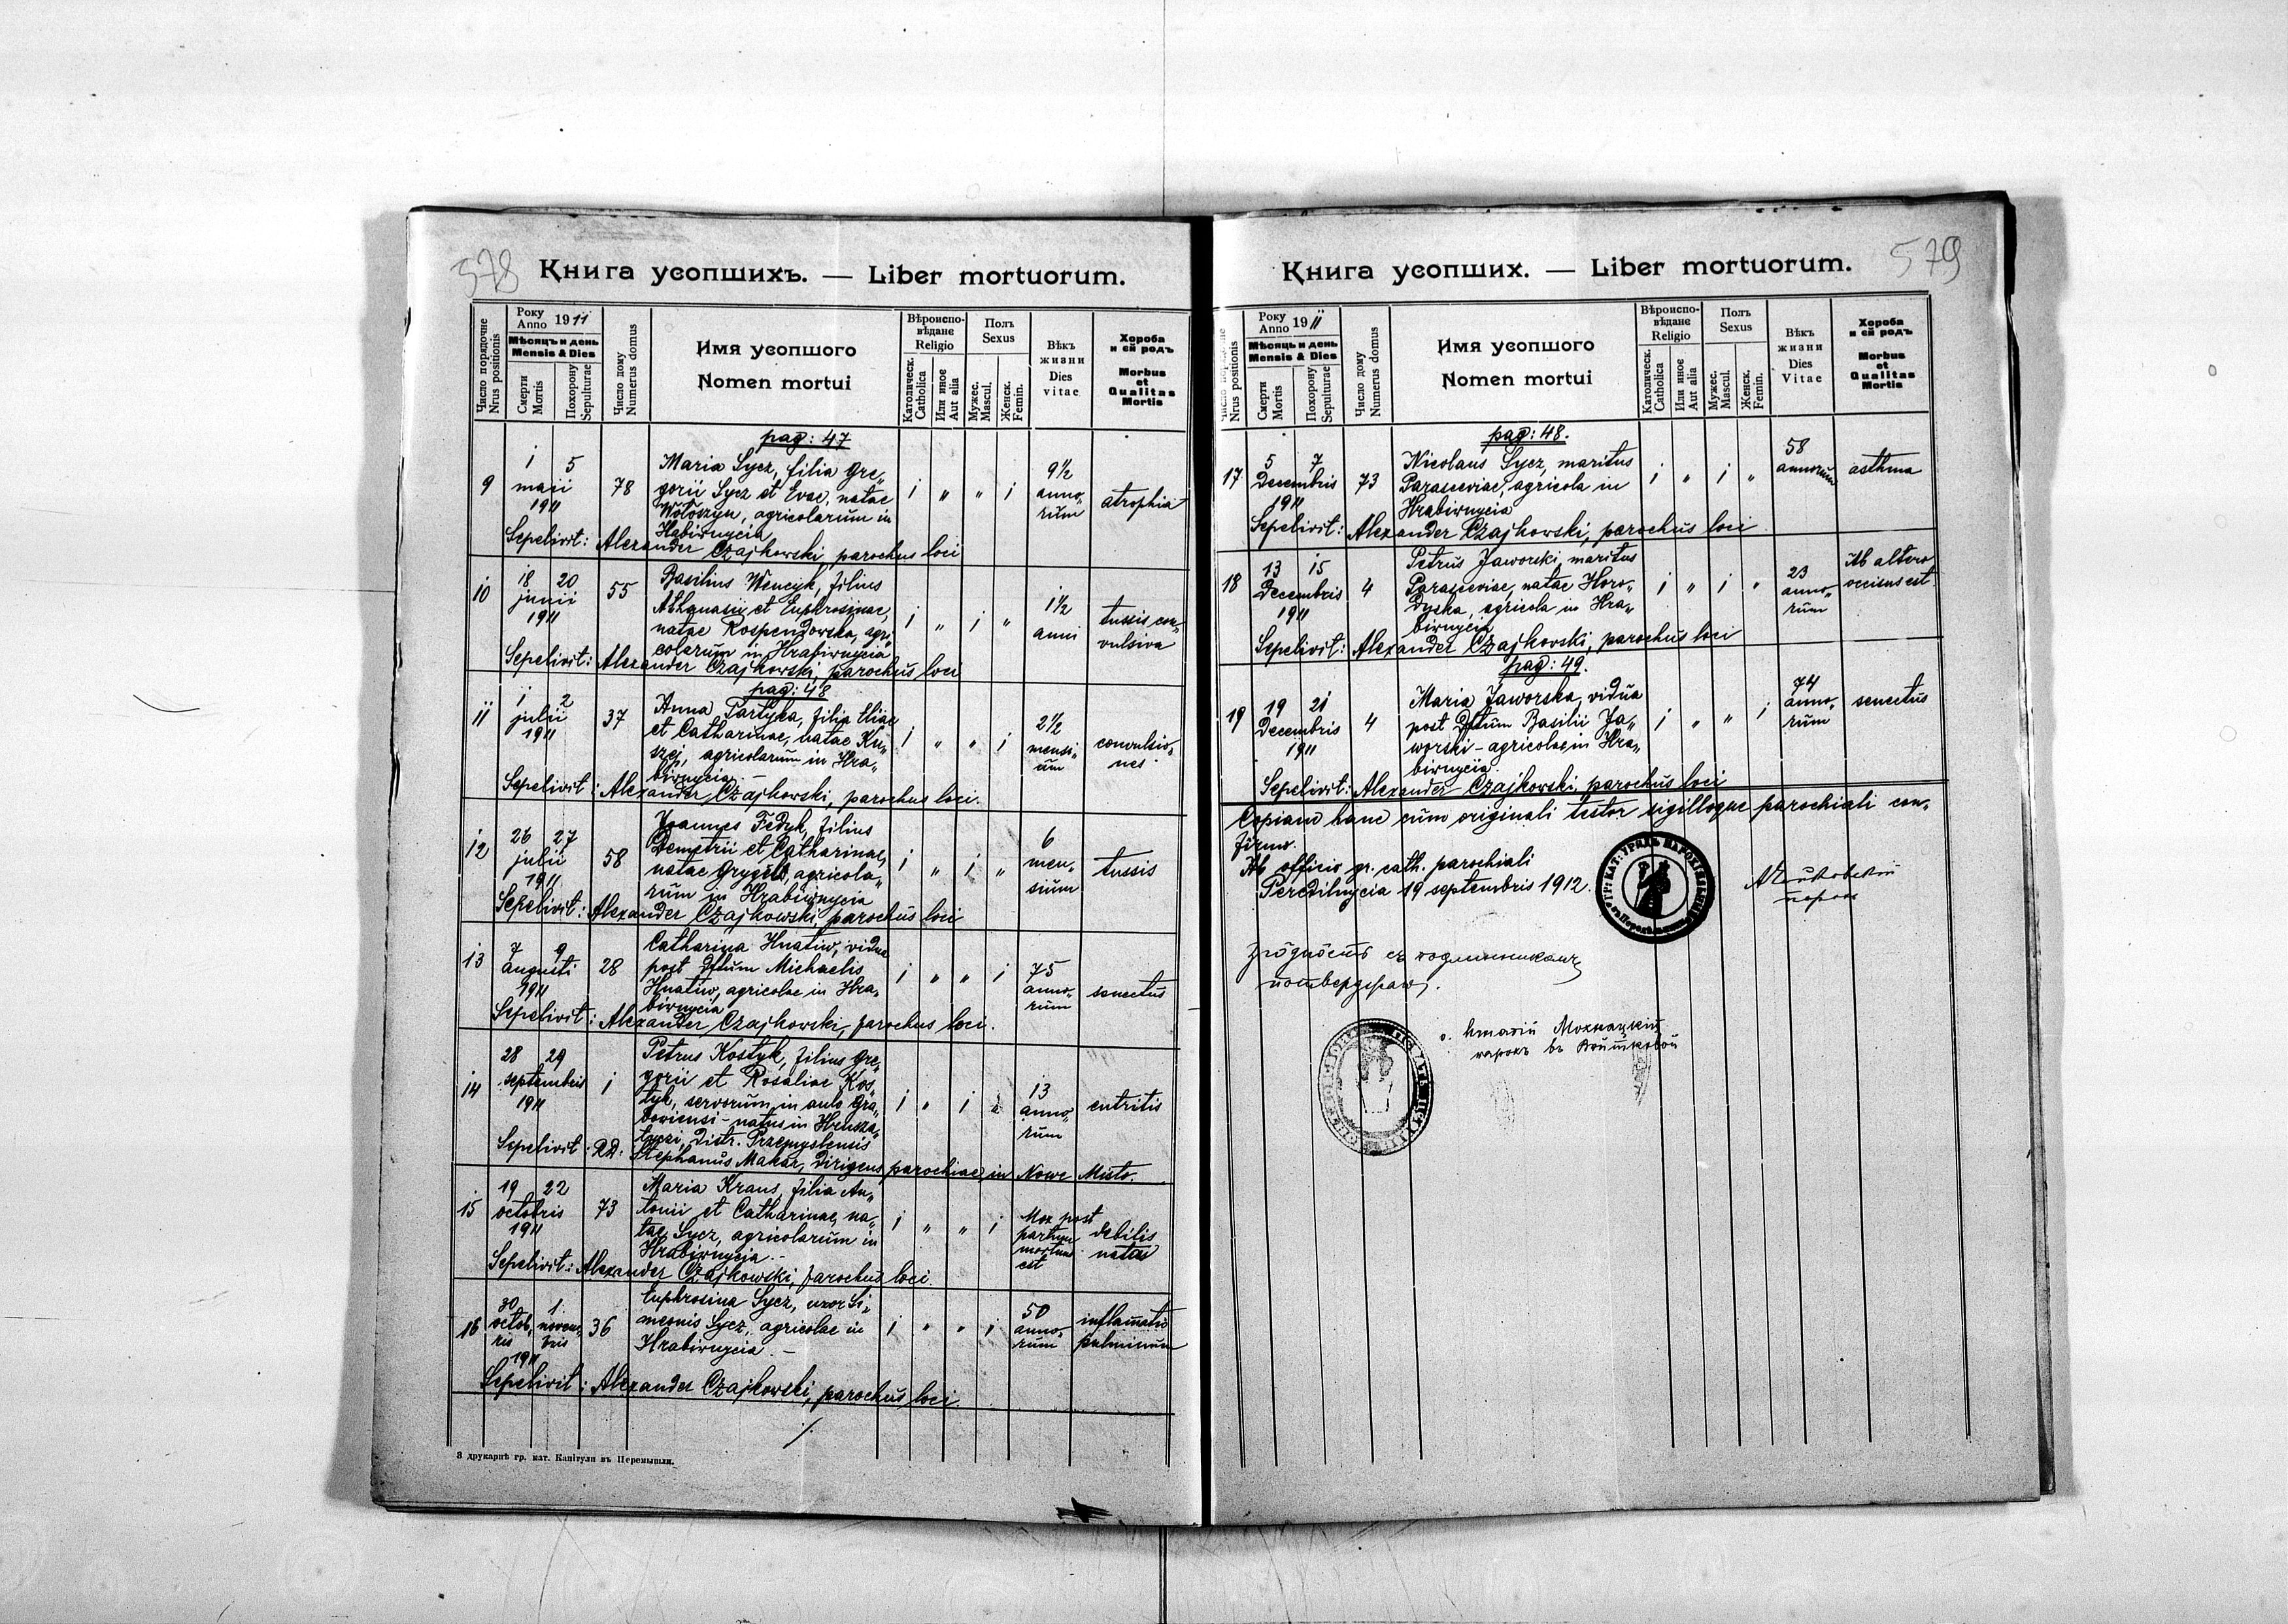 578
Книга усопшихъ. — Liber mortuorum.
Число порядочне
Nrus positionis
Року
Anno 1911
Мѣсяцъ и день
Mensis & Dies
Смерти
Mortis
Похорону
Sepulturae
Число дому
Numerus domus
Имя усопшого
Nomen mortui
Вѣроиспо-
вѣдане
Religio
Католическ.
Catholica
Или иное
Aut alia
Полъ
Sexus
Мужес.
Mascul.
Женск.
Femin.
Вѣкъ
жизни
Dies
vitae
Хороба
и єй родъ
Morbus
et
Qualitas
Mortis
pag: 47
9 1 5 maii 1911 78
Maria Sycz, filia Gre„
gorii Sycz et Evae, natae
Wołoszyn, agricolarum in
Habirnycia
1 „ „ 1
9½
anno„
rum
atrophia
Sepelivit: Alexander Czajkowski, parochus loci
10 18 20 junii 1911 55
Basilius Wencyk, filius
Athanasii et Euphrosinae,
natae Rospendowska, agri„
colarum in Hrabiwnycia
1 „ 1 „
1½
anni
tussis con„
vulsiva
Sepelivit: Alexander Czajkowski, parochus loci
pag: 48
11 1 2 julii 1911 37
Anna Partyka, filia Eliae
et Catharinae, natae Ku„
szej, agricolarum in Hra„
birnycia. —
1 „ „ 1
2½
mensi„
um
convulsio„
nes.
Sepelivit: Alexander Czajkowski, parochus loci.
12 26 27 julii 1911 58
Joannes Fedyk, filius
Demetrii et Catharinae,
natae Grygiel, agricola„
rum in Hrabiwnycia
1 „ 1 „
6
men„
sium
tussis
Sepelivit: Alexander Czajkowski, parochus loci
13 7 9 augusti 1911 28
Catharina Hnatiw, vidua
post Dftum Michaelis
Hnatiw, agricolae in Hra„
birnycia
1 „ „ 1
75
anno„
rum
senectus
Sepelivit: Alexander Czajkowski, parochus loci.
14 28 29 septembris 1911 1
Petrus Kostyk, filius Gre„
gorii et Rosaliae Kos„
tyk, servorum in aula Gra„
boviensi - natus in
Distr. Przemyslensis
1 „ 1 „
13
anno„
rum
entritis
Sepelivit: RD: Stephanus Makar, Dirigens parochiae in Nowe Misto.
15 19 22 octobris 1911 73
Maria Kraus, filia An„
tonii et Catharinae, na„
tae Sycz, agricolarum in
Hrabiwnycia. —
1 „ „ 1
Mox post
partum
mortua
est
debilis
nata
Sepelivit: Alexander Czajkowski, parochus loci.
16 30 octob„ ris 1. novem„ bris 1911 36
Euphrosina Sycz, uxor Si„
meonis Sycz, agricolae in
Hrabiwnycia. —
1 „ „ 1
50
anno„
rum
inflamatio
pulminum
Sepelivit: Alexander Czajkowski, parochus loci.
З друкарнѣ гр. кат. Капітули въ Перемышли.
579
Книга усопших. — Liber mortuorum.
Nrus positionis
Року
Anno 1911
Мѣсяцъ и день
Mensis & Dies
Смерти
Mortis
Похорону
Sepulturae
Число дому
Numerus domus
Имя усопшого
Nomen mortui
Вѣроиспо-
вѣдане
Religio
Католическ.
Catholica
Или иное
Aut alia
Полъ
Sexus
Мужес.
Mascul.
Женск.
Femin.
Вѣкъ
жизни
Dies
Vitae
Хороба
и єй родъ
Morbus
et
Qualitas
Mortis
pag: 48.
17 5 7 Decembris 1911 73
Nicolaus Sycz, maritus
Parasceviae, agricola in
Hrabiwnycia
1 „ 1 „
58
annorum
asthma
Sepelivit: Alexander Czajkowski, parochus loci
18 13 15 Decembris 1911 4
Petrus Jaworski, maritus
Parasceviae, natae Horo„
dyska, agricola in Hra„
birnycia
1 „ 1 „
23
anno„
rum
Ab altero
occisus est.
Sepelivit: Alexander Czajkowski, parochus loci
pag: 49.
19 19 21 Decembris 1911 4
Maria Jaworska, vidua
post Dftum Basilii Ja„
worski - agricolae in Hra„
birnycia.
1 „ „ 1
74
anno„
rum
senectus
Sepelivit: Alexander Czajkowski, parochus loci
Copiam hanc cum originali testor sigilloque parochiali con„
firmo.
Ab officio gr. cath. parochiali
Peredilnycia 19 septembris 1912.
парох
згôдность съ подлинникомъ
потверджаю.
о. Игнатій Мохнацкій
парохъ въ Войтковой